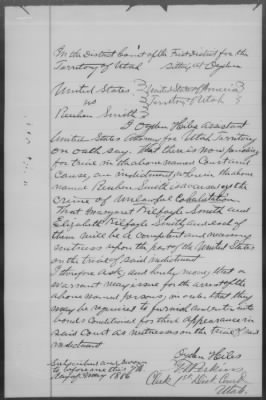 In the District Court of the First District for the
Territory of Utah Sitting at Ogden
United States } United States of America }
vs } Territory of Utah }
Reuben Smith }
I Ogden Hiles Assistant
United States Attorney for Utah Territory
on oath say, That there is now pending
for trial in the above named Court and
Cause an indictment wherein the above
named Reuben Smith is accused of the
crime of Unlawful Cohabitation
That Margret Smith and
Elizabeth Smith, and each of
them will be a competent and necessary
witness upon the part of the United States
on the trial of said indictment
I therefore ask and hereby move that a
warrant may issue for the arrest of the
above named persons, in order that they
may be required to furnish and enter into
bonds conditional for their appearance in
said Court as witnesses on the trial of said
indictment
Ogden Hiles
Subscribed and sworn
to before me this 7th
day of May 1886
Clerk 1st Dist Court
Utah.